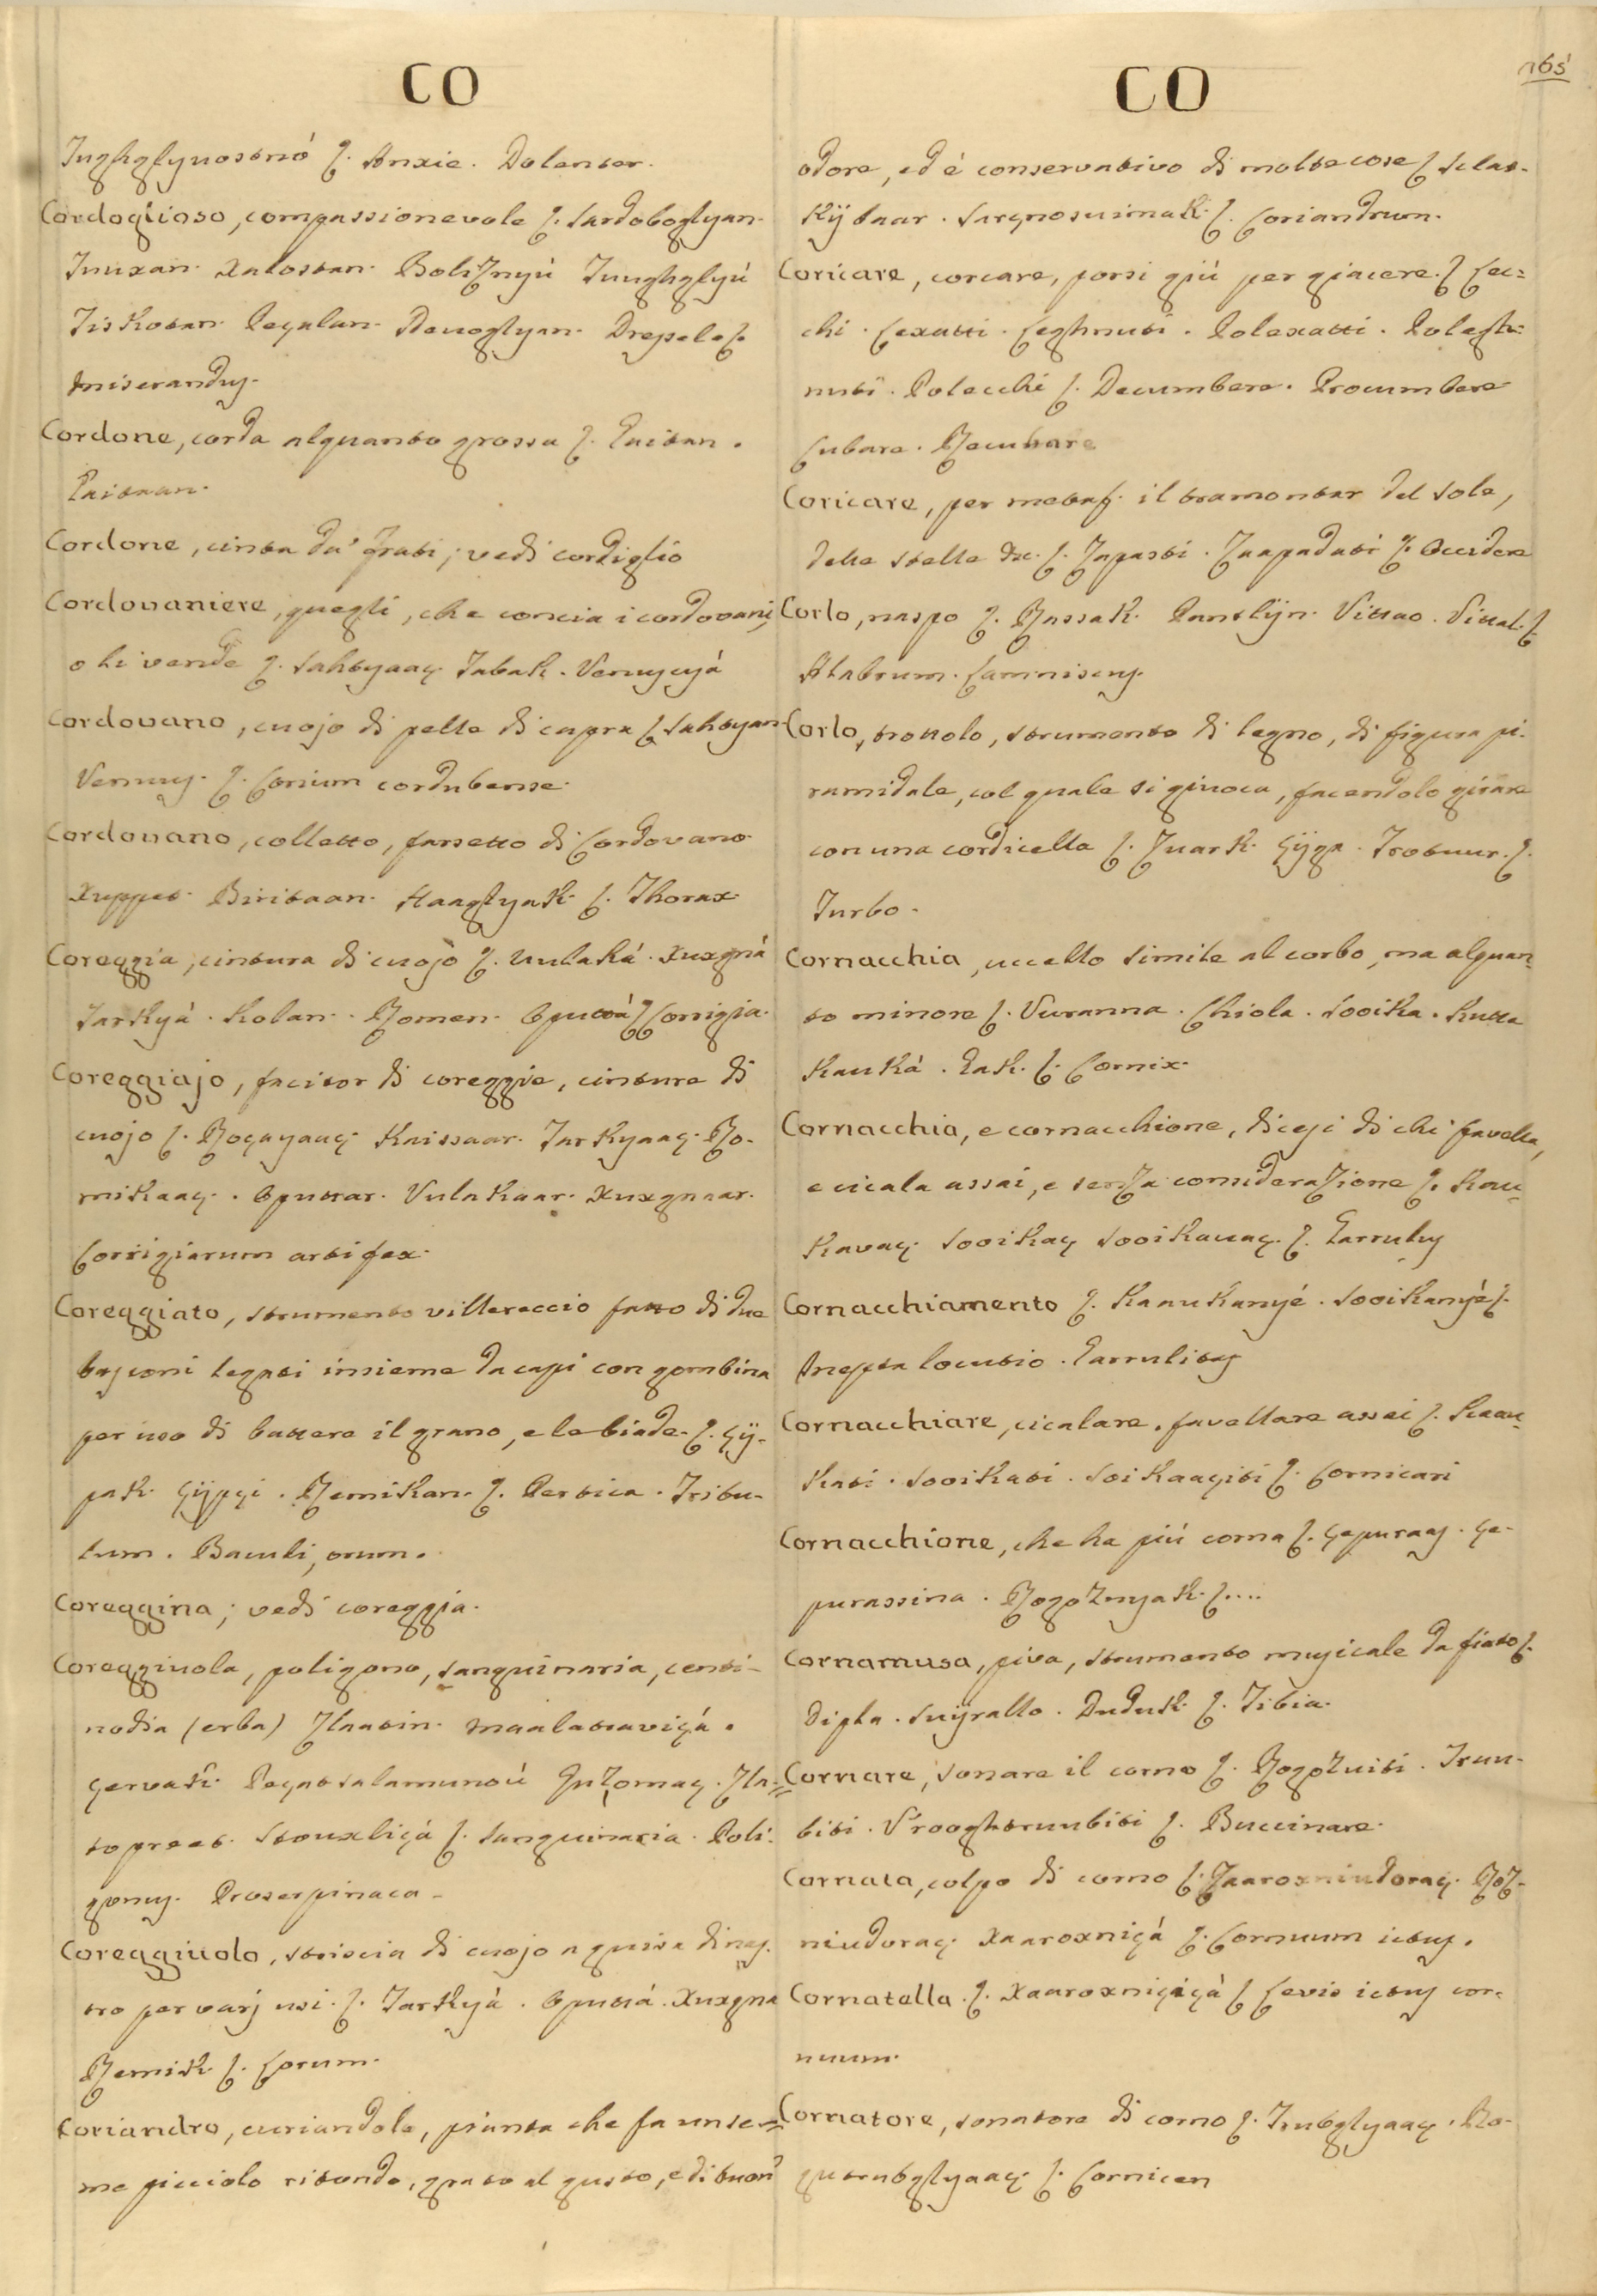 CO
Tughglyvostnó ſ. Anxie. Dolenter.
Cordoglioso, compassionevole ſ. Sardoboglyan.
Tuuxan. Xalostan. Boliznyú Tunghglyú
Tiskotan. Peçalan. Nevoglyan. Drepele ſ.
Miserandus.
Cordone, corda alquanto grossa ſ. Gaitan.
Paitaan.
Cordone, cinta da' frati; vedi cordiglio
Cordovaniere, quegli, che concia i cordovani,
o li vende ſ. Sahtyaaç Tabak. Verusçyá
Cordovano, cuojo di pelle di capra ſ. Sahtyan.
Verusy. ſ. Corium cordubense.
Cordovano, colletto, farsetto di Cordovano
Xuppet. Biritaan. Haaglyak. ſ. Thorax.
Coreggia, cintura di cuojo ſ. Vulaká. Xuxgná
Tarkyá. Kolan. Remen. Oputtá ſ. Corrigia.
Coreggiajo, facitor di coreggie, cinture di
cuojo ſ. Roçayaaç. Kaissaar. Tarkyaaç. Re-
mikaaç. Oputtar. Vulakaar. Xuxgnaar.
Corrigiarum artifex.
Coreggiato, strumento villereccio fatto di due
bastoni legati insieme da capi con gombina
per uso di battere il grano, e le biade. ſ. Çÿ-
pak. Çÿpçi. Remikan. ſ. Pertica. Tribu-
lum. Baculi, orum.
Coreggina; vedi coreggia.
Coreggiuola, poligono, sanguinaria, centi-
nodia (erba) Zlaatin. Maalatraviçá.
Çervak. Peçatsalamunoú Guzomaç. Zla-
toprеet. Stouxliçá ſ. Sanguinaria. Poli-
gonus. Proserpinaca.
Coreggiuolo, striscia di cuojo a guisa di nas-
tro per varj usi. ſ. Tarkyá. Oputtá. Xuxgna
Remik ſ. Lorum.
Coriandro, curiandolo, pianta che fa un se-
me picciolo ritondo, grato al gusto, e di buon
CO
165
odore, ed è conservativo di molte cose ſ. Slat-
kÿbaar. Sarçnosuimak. ſ. Coriandrum.
Coricare, corcare, porsi giú per giacere. ſ. Lec-
chi. Lexatti. Leghnuti. Polexatti. Polegh-
nuti. Polecchi ſ. Decumbere. Procumbere
Cubare. Recubare
Coricare, per metaf. il tramontar del sole,
delle stelle &c. ſ. Zapasti. Zaapadati ſ. Occidere
Corlo, naspo ſ. Rassak. Pantlÿn. Vittao. Vittal. ſ.
Alabrum. Lamniscus.
Corlo, trottolo, strumento di legno, di figura pi-
ramidale, col quale si giuoca, facendolo girare
con una cordicella ſ. Zuark. Çÿga. Trotuur. ſ.
Turbo.
Cornacchia, uccello simile al corbo, ma alquan-
to minore ſ. Vuranna. Chiola. Sooika. Kutta
Kauká. Gak. ſ. Cornix.
Cornacchia, e cornacchione, dicesi di chi favella,
e cicala assai, e senza considerazione ſ. Kau-
kavaç. Sooikaç Sooikavaç. ſ. Garrulus
Cornacchiamento ſ. Kaaukanyé. Sooikanyé ſ.
Inepta locutio. Garrulitas
Cornacchiare, cicalare, favellare assai ſ. Kaau-
kati. Sooikati. Soikaaçiti ſ. Cornicari
Cornacchione, che ha più corna ſ. Çepuraaς. Çe-
purassina. Rogoznyak. ſ....
Cornamusa, piva, strumento musicale da fiato ſ.
Dipla. Suÿrallo. Duduk ſ. Tibia.
Cornare, sonare il corno ſ. Rogozuiti. Truu-
biti. Vrooghtruubiti ſ. Buccinare.
Cornata, colpo di corno ſ. Zaaroxniudoraç. Roz-
niudoraç. Xaaroxniçá ſ. Cornuum ictus.
Cornatella. ſ. Xaaroxniçiçá ſ. Levis ictus cor-
nuum.
Cornatore, sonatore di corno ſ. Trubglyaaç. Ro-
gutrubglyaaç. ſ. Cornicen